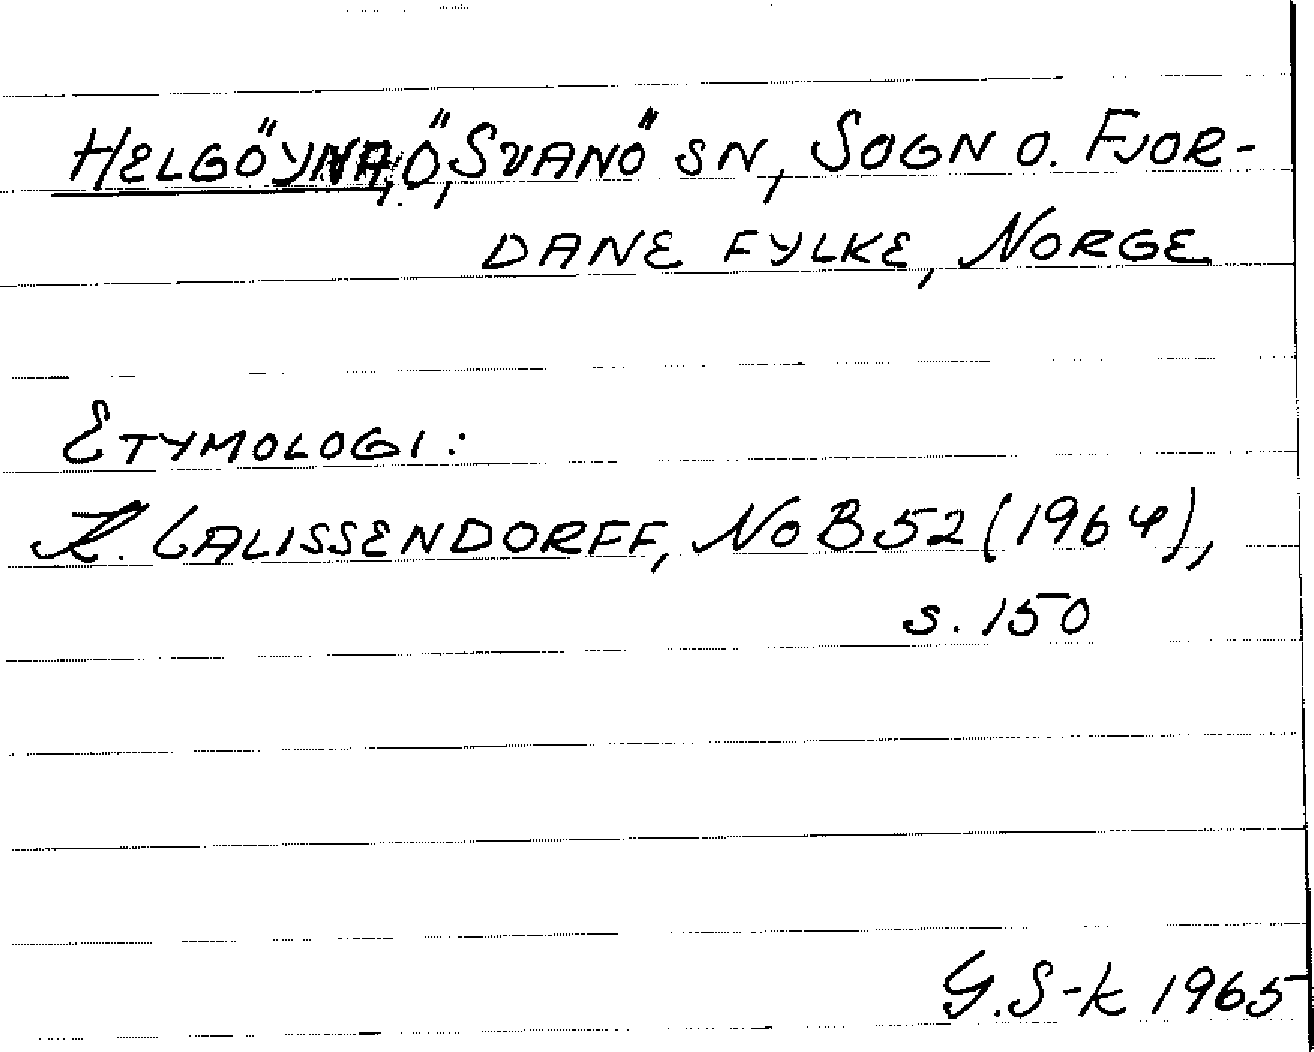 HELGÖYNA, Ö, SVANÖ SN, SOGN O. FJOR-
DANE FYLKE, NORGE
ETYMOLOGI:
K. CALISSENDORFF, NoB 52 (1964),
s. 150
G. S-k 1965